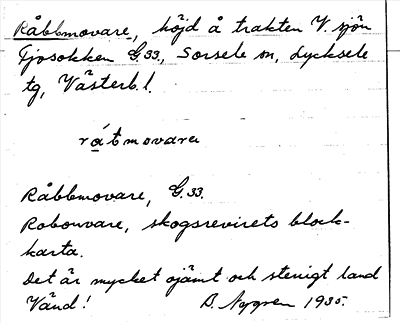 Råbbmovare, höjd å trakten V. sjön
Tjosokken G.33., Sorsele sn, Lycksele
tg, Västerb.l.
rátmovarɛ
Råbbmovare, G.33.
Robouvare, skogsrevirets block-
karta.
Det är mycket ojämt och stenigt land
Vänd! B. Nygren 1935.